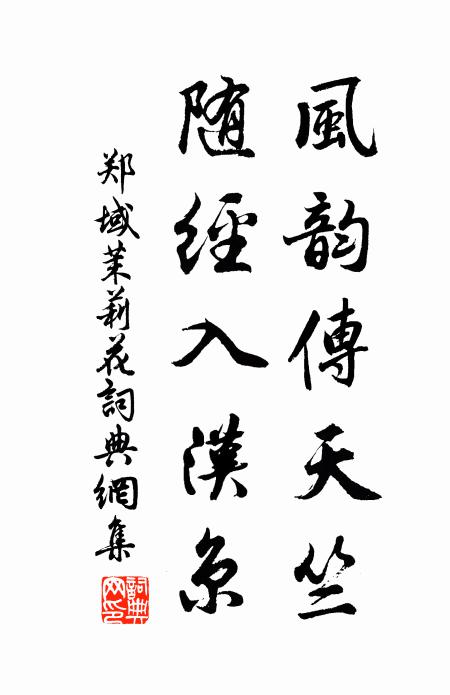 風韵傳天竺
随經入漢京
郑域茉莉花詞典網集
詞典網印